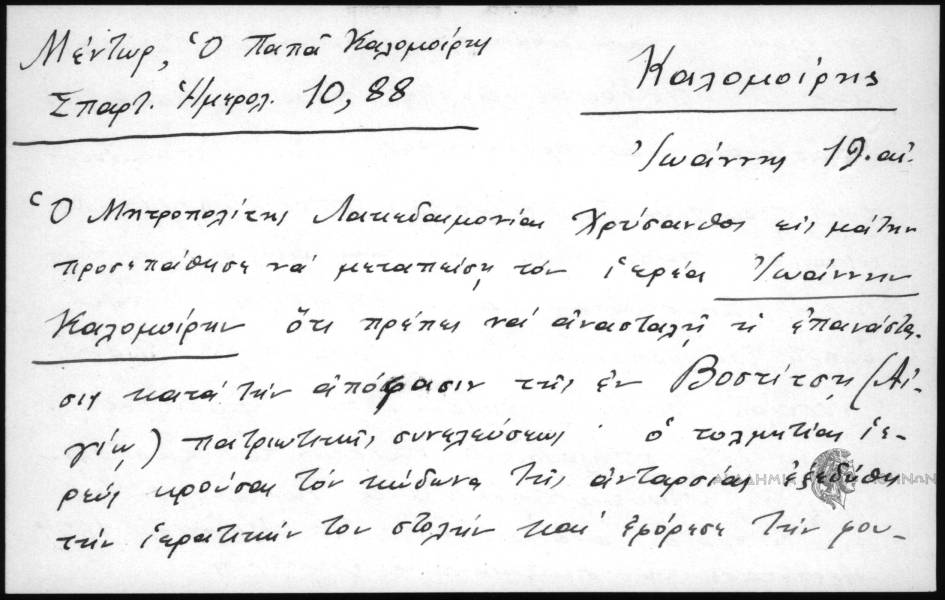 Μέντωρ, Ὁ Παπᾶ Καλομοίρης
Σπαρτ. Ἡμερολ. 10, 88
Καλομοίρης
Ἰωάννης 19. αἰ.
Ὁ Μητροπολίτης Λακεδαιμονίας Χρύσανθος εἰς μάτην
προσεπάθησε νά μεταπείσῃ τόν ἱερέα Ἰωάννην
Καλομοίρην ὅτι πρέπει νά ἀνασταλῇ ἡ ἐπανάστα-
σις κατά τήν ἀπόφασιν τῆς ἐν Βοστίτσῃ (Αἰ-
γίῳ) πατριωτικῆς συνελεύσεως · ὁ τολμητίας ἱε-
ρεύς κρούσας τόν κώδωνα τῆς ἀνταρσίας ἐξεδύθη
τήν ἱερατικήν του στολήν καί ἐφόρεσε τήν φου-
ΑΚΑΔΗΜΙΑ ΑΘΗΝΩΝ